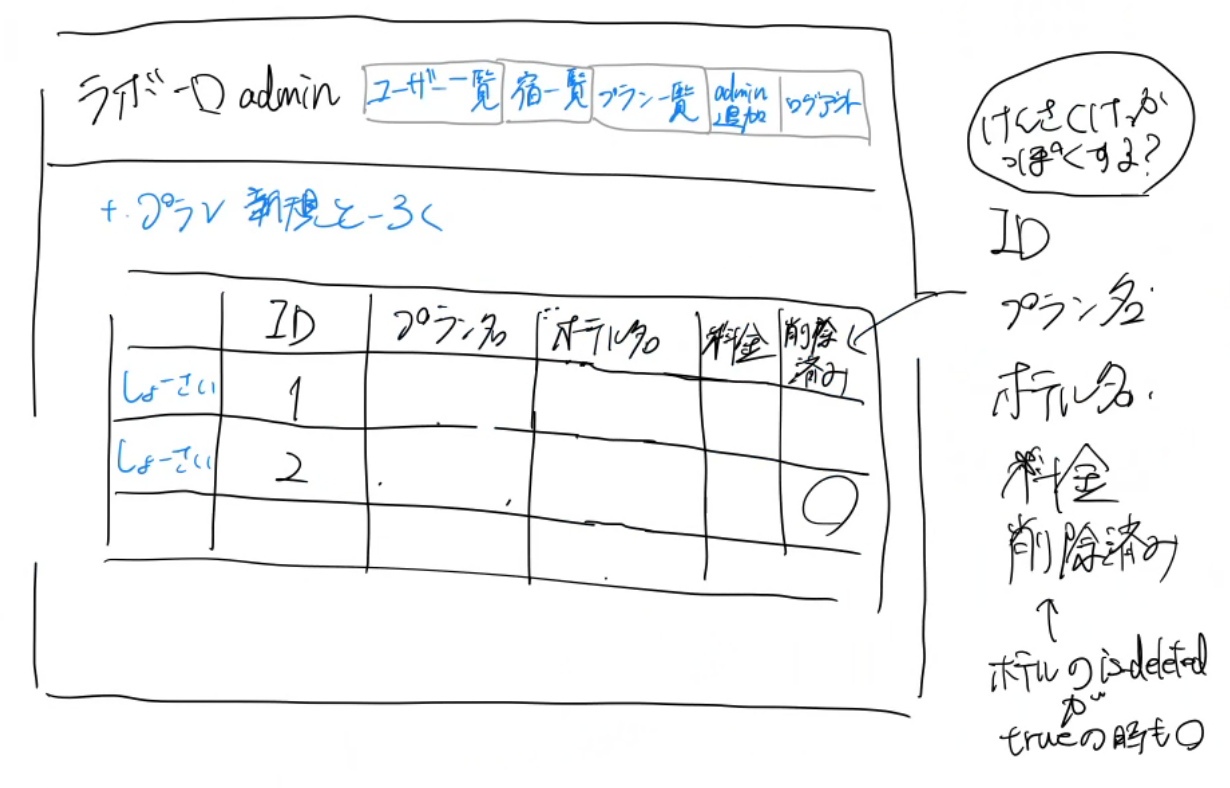 ライボーロ admin
ユーザー一覧
宿一覧
プラン一覧
admin
追加
ログアウト
+.プラン 新規とーろく
ID プラン名 ホテル名 料金 削除
済み
しょーさい 1
しょーさい 2
○
けんさくけっか
っぽくする?
ID
プラン名
ホテル名.
料金
削除済み
↑
ホテルのis_deleted
が
trueの時も○